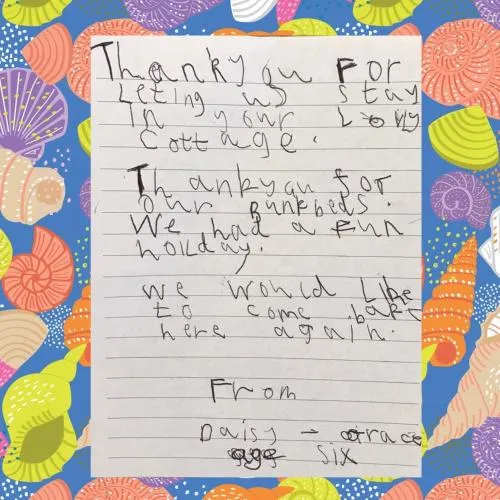 Thankyou For
Leting us stay
in your Lovly
Cottage.
Thankyou for
our bunkbeds.
We had a Fun
holiday.
we would Like
to come back
here again.
From
Daisy - Grace
age six